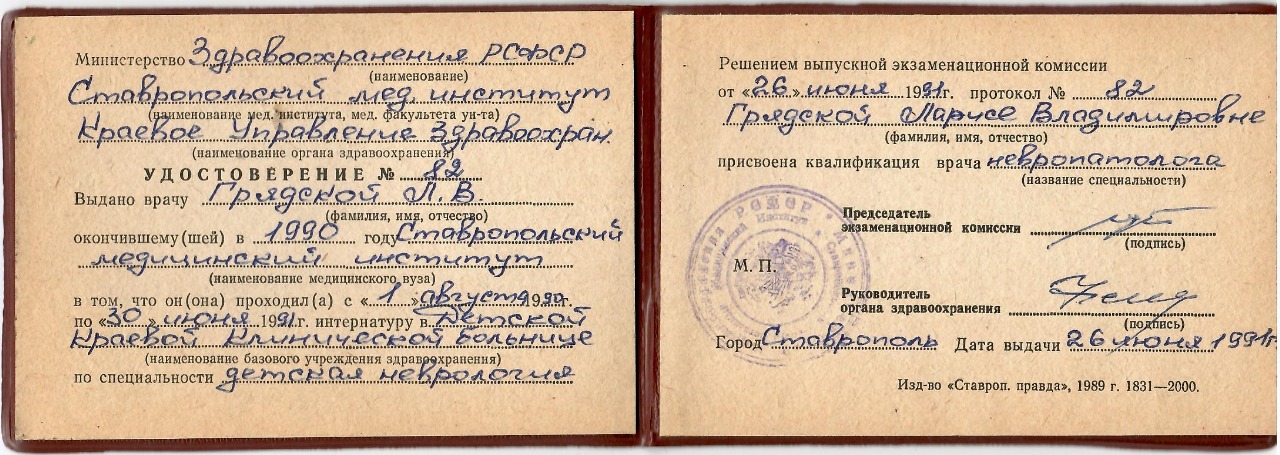 Министерство Здравоохранения РСФСР
(наименование)
Ставропольский мед. институт
(наименование мед. института, мед. факультета ун-та)
Краевое Управление Здравоохран.
(наименование органа здравоохранения)
УДОСТОВЕРЕНИЕ № 82
Выдано врачу Грядской Л.В.
(фамилия, имя, отчество)
окончившему(шей) в 1990 году Ставропольский
медицинский институт
(наименование медицинского вуза)
в том, что он(она) проходил(а) с «1» августа 1990г.
по «30» июня 1991г. интернатуру в Детской
Краевой Клинической больнице
(наименование базового учреждения здравоохранения)
по специальности детская неврология
Решением выпускной экзаменационной комиссии
от «26» июня 1991г. протокол № 82
Грядской Ларисе Владимировне
(фамилия, имя, отчество)
присвоена квалификация врача невропатолога
(название специальности)
Председатель
экзаменационной комиссии
(подпись)
М. П.
Руководитель
органа здравоохранения
(подпись)
Город Ставрополь Дата выдачи 26 июня 1991г.
Изд-во «Ставроп. правда», 1989 г. 1831—2000.